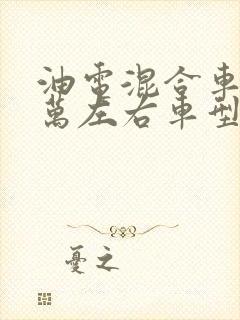 油電混合車
萬左右車型
憂之